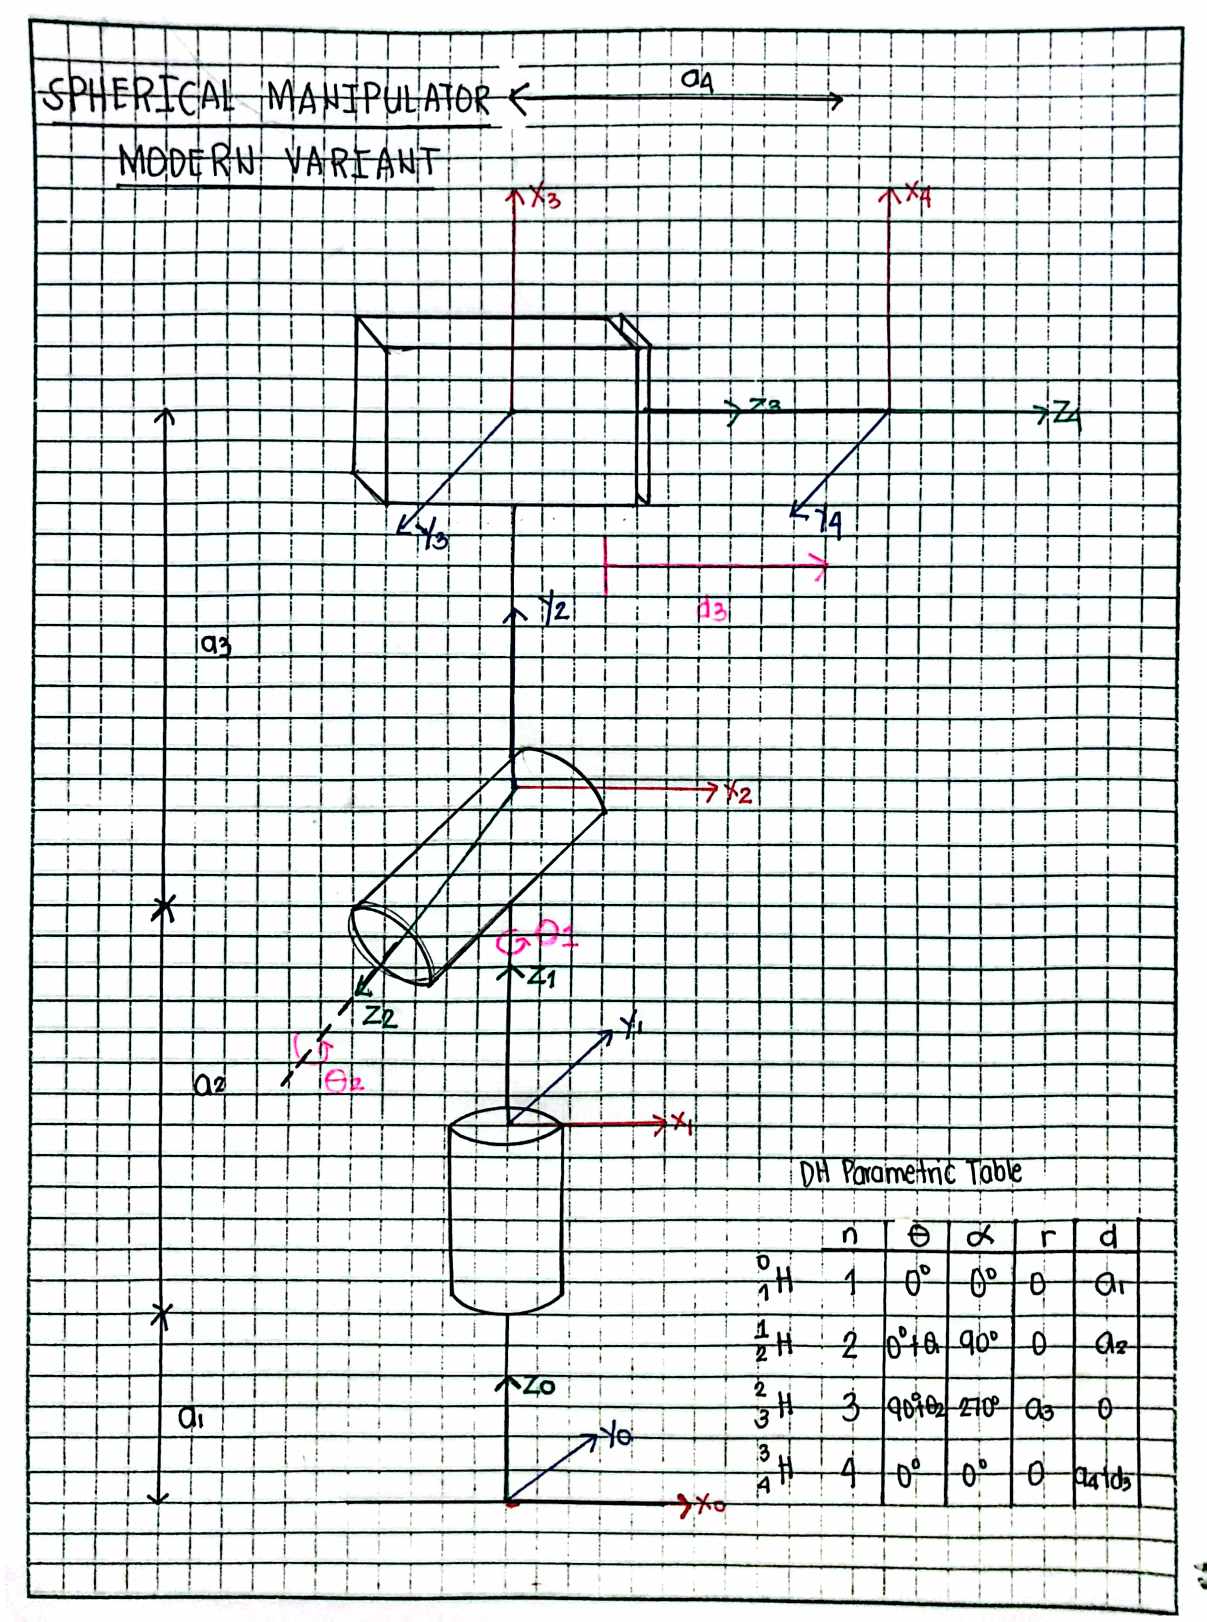 SPHERICAL MANIPULATOR
a4
MODERN VARIANT
X3
X4
Z3
Z4
Y3
Y4
d3
Y2
a3
X2
θ1
Z1
Z2
Y1
a2
θ2
X1
DH Parametric Table
n θ α r d
0 1 H 1 0° 0° 0 a1
1 2 H 2 0°+θ1 90° 0 a2
2 3 H 3 90°+θ2 270° a3 0
3 4 H 4 0° 0° 0 a4+d3
Z0
a1
Y0
X0